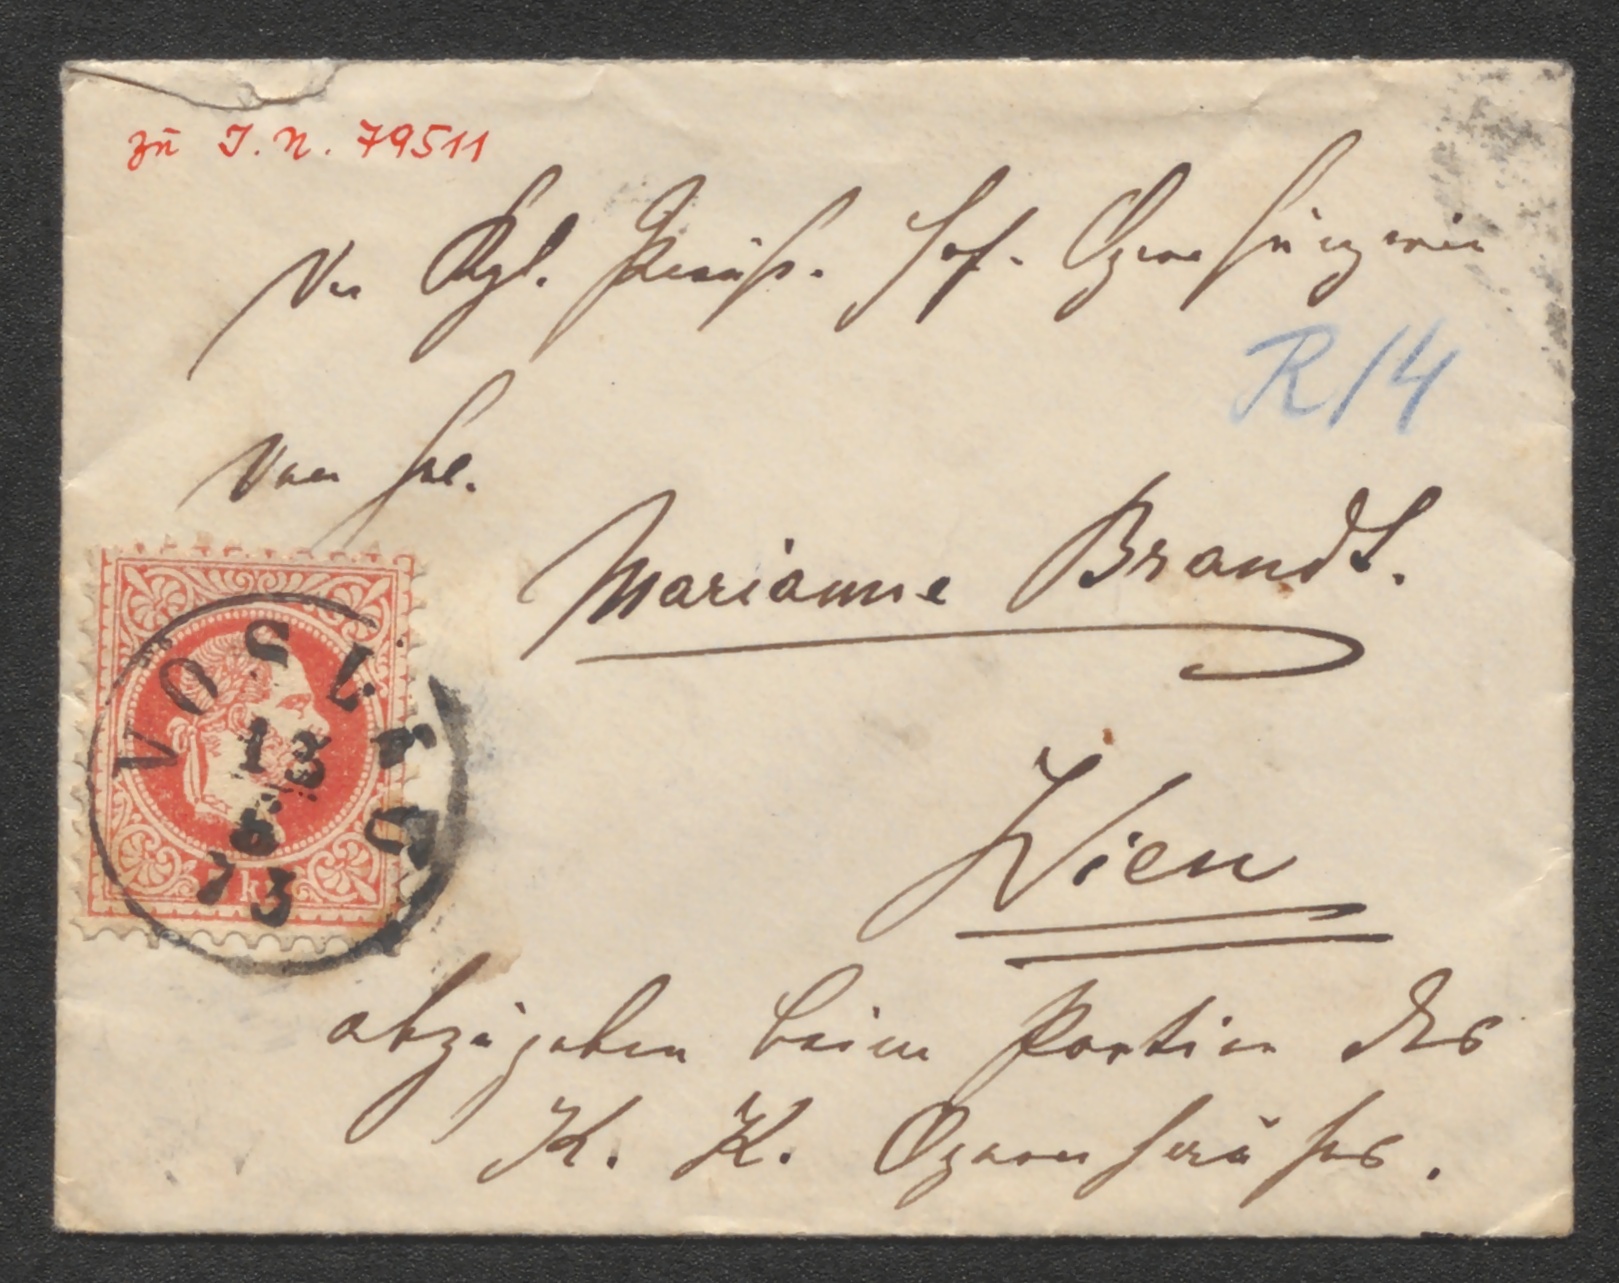 zu I. N. 79511
Der Kgl. Preuß. Hof. Opernsängerin
R/4
Frl.
Marianne Brandt.
VÖSLAU
13
8
73
5 kr
Wien
abzugeben beim Portier des
K. K. Opernhauses.